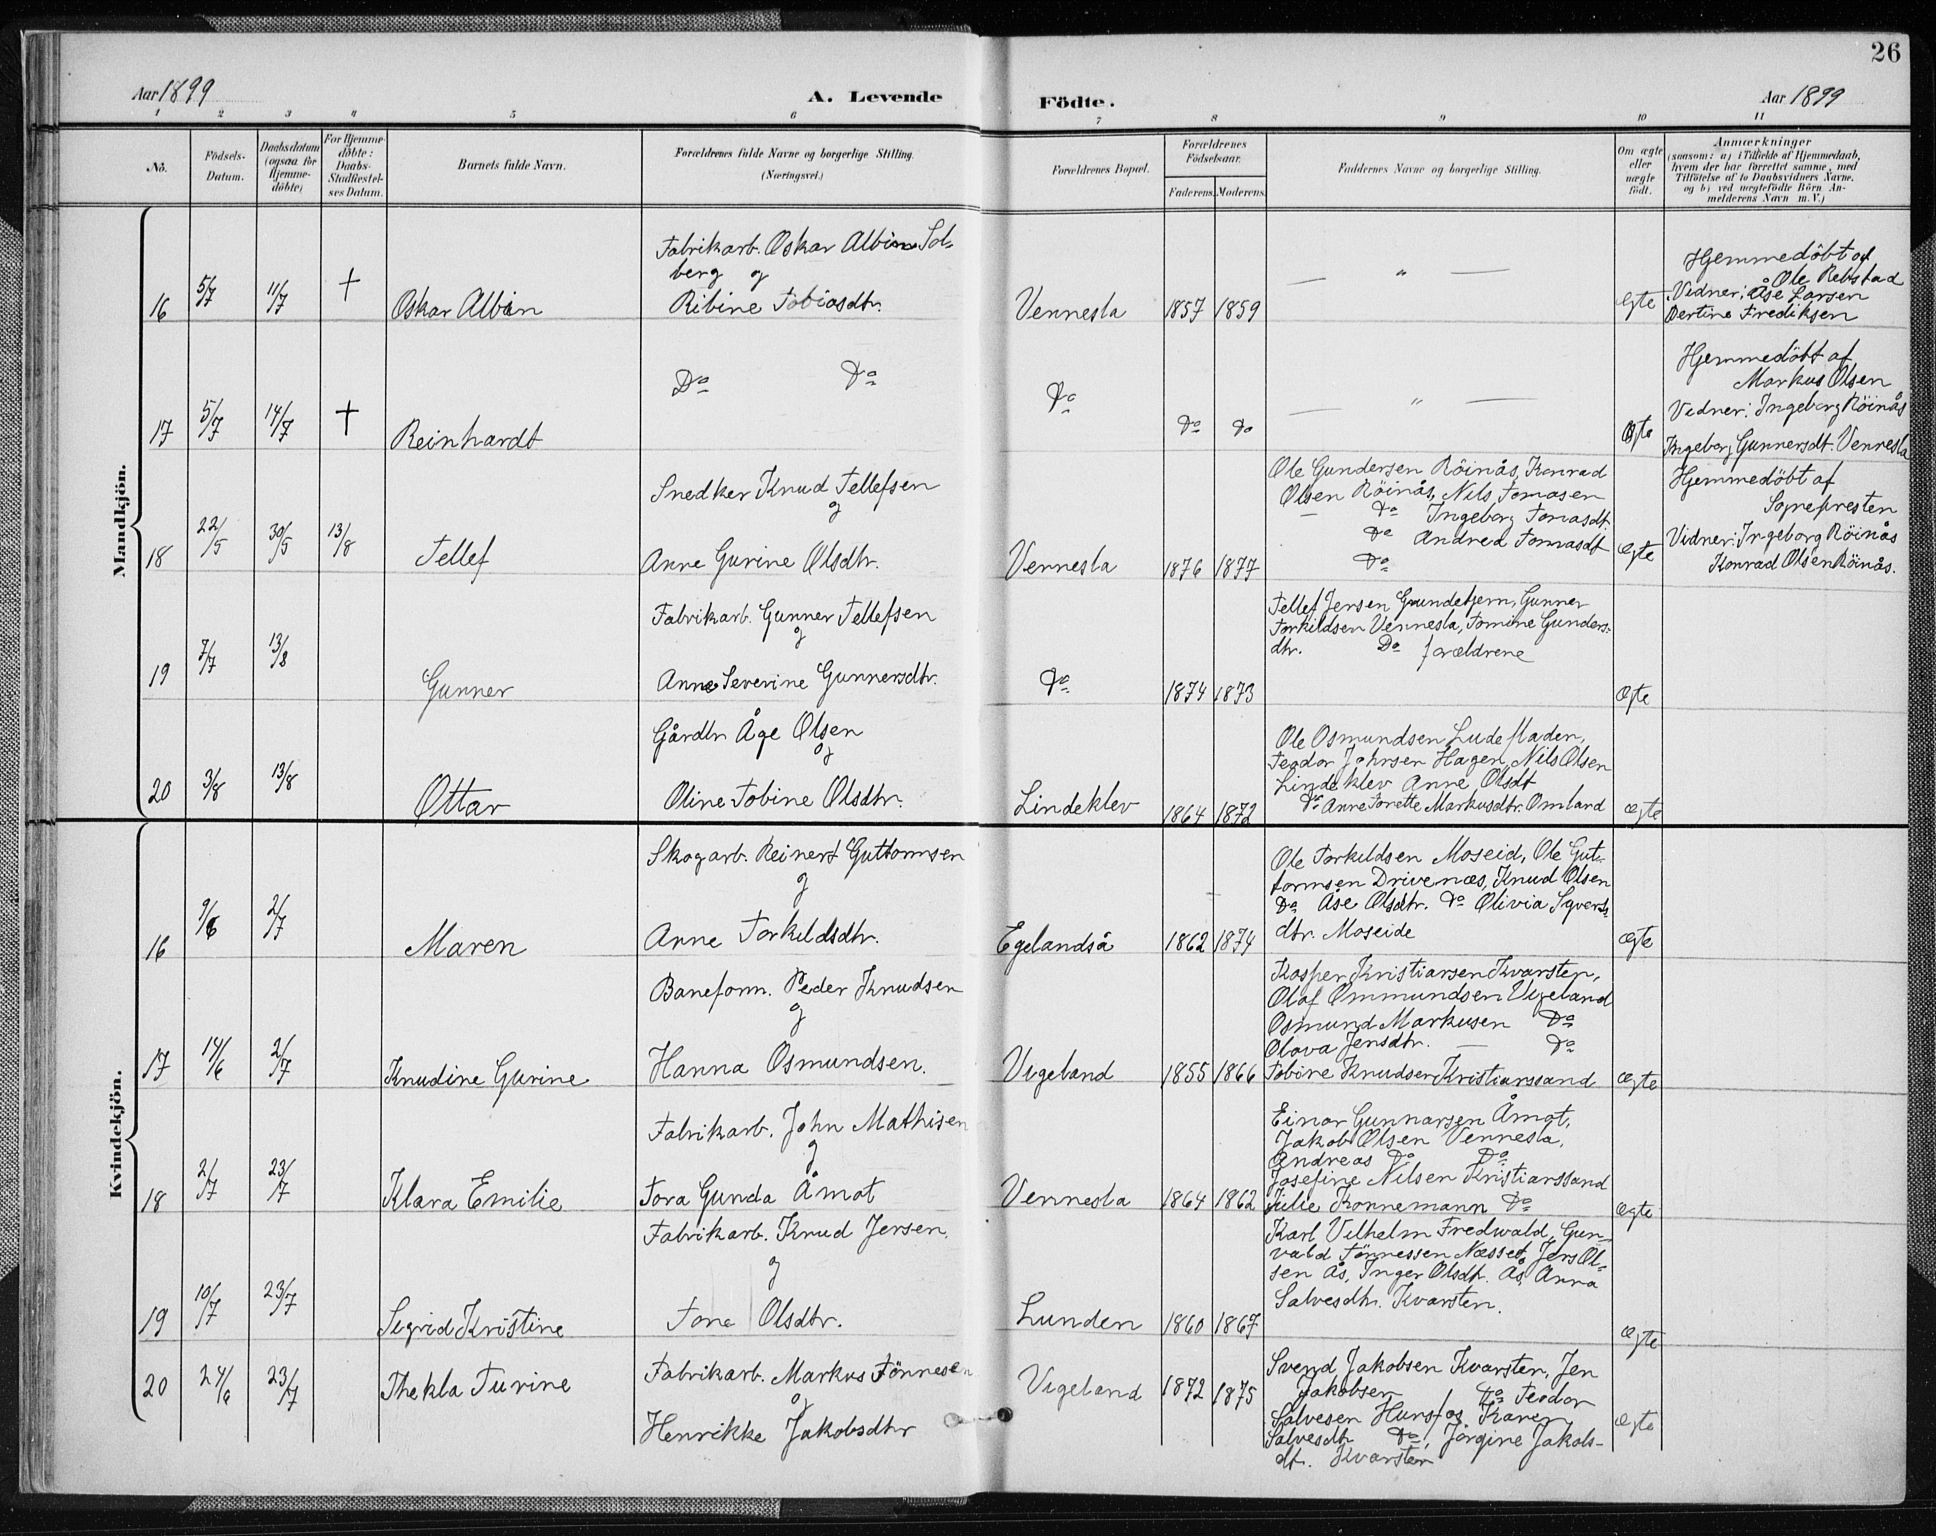 26
Aar 1899
A. Levende
Födte.
Aar 1899
1 2 3 4 5 6 7 8 9 10 11
No.
Födsels-
Datum.
Daabsdatum
(ogsaa for
Hjemme-
döbte)
For Hjemme-
döbte:
Daabs-
Stadfæstel-
ses Datum.
Barnets fulde Navn.
Forældrenes fulde Navne og borgerlige Stilling.
(Næringsvei.)
Forældrenes Bopæl.
Forældrenes
Födselsaar.
Faderens. Moderens.
Faddernes Navne og borgerlige Stilling.
Om ægte
eller
uægte
födt.
Anmærkninger
(saasom: a) i Tilfælde af Hjemmedaab,
hvem der har forrettet samme, med
Tilföielse af to Daabsvidners Navne,
og b) ved uægtefödte Börn An-
melderens Navn m. V.)
Mandkjön.
16 5/7 11/7 †
Oskar Albin
Fabrikarb. Oskar Albin Sol-
berg og
Ribine Tobiasdtr.
Vennesla 1857 1859
— " —
Ægte
Hjemmedöbt af
Ole Rebstad
Vedner: Åse Larsen
Bertine Frediksen
17 5/7 14/7 †
Reinhardt
Do Do
Do
Do Do
— " —
Ægte
Hjemmedöbt af
Markus Olsen
Vedner: Ingeborg Röinås
Ingeborg Gunnersdt. Vennesla
18 22/5 30/5 13/8
Tellef
Snedker Knud Tellefsen
og
Anne Gurine Olsdtr.
Vennesla 1876 1877
Ole Gundersen Röinås, Konrad
Olsen Röinås, Nils Tomasen
— Do Ingeborg Tomasdt.
Do Andrea Tomasdt
Do
Ægte
Hjemmedöbt af
Sognepresten
Vidner: Ingeborg Röinås
Konrad Olsen Röinås.
19 7/7 13/8
Gunner
Fabrikarb. Gunner Tellefsen
og
Anne Severine Gunnersdtr.
Do
1874 1873
Tellef Jensen Grundetjern, Gunner
Torkildsen Vennesla, Tomine Gunders-
dtr. Do forældrene
Ægte
20 3/8 13/8
Ottar
Gårdbr Åge Olsen
og
Oline Tobine Olsdtr.
Lindeklev 1864 1872
Ole Osmundsen Ludefladen,
Teodor Johnsen Hagen, Nils Olsen
Lindeklev Anne Olsdt
Do Anne Torette Markusdtr. Omland
Ægte
Kvindekjön.
16 9/6 2/7
Maren
Skogarb. Reinert Guttormsen
og
Anne Torkildsdtr.
Egelandså 1862 1874
Ole Torkildsen Moseid, Ole Gut-
tormsen Drivenæs, Knud Olsen
Do Åse Olsdtr. Do Olivia Sqverds
dtr. Moseide
Ægte
17 14/6 2/7
Knudine Gurine
Baneform. Peder Knudsen
og
Hanna Osmundsen.
Vigeland 1855 1866
Kasper Kristiansen Kvarsten,
Olaf Ommundsen Vigeland
Osmund Markusen Do
Olava Jensdtr. — Do
Tobine Knudsen Kristianssand
Ægte
18 2/7 23/7
Klara Emilie
Fabrikarb. John Mathisen
og
Tora Gunda Åmot
Vennesla 1864 1862
Einar Gunnarsen Åmot,
Jakob Olsen Vennesla,
Andreas Do Do
Josefine Nilsen Kristianssand
Julie Konnemann Do
Ægte
19 10/7 23/7
Sigrid Kristine
Fabrikarb. Knud Jensen
og
Tone Olsdtr.
Lunden 1860 1867
Karl Vilhelm Fredwald, Gun-
vald Tönnessen Næsset, Jens Ol-
sen Ås, Inger Olsdt. Ås, Anna
Salvesdtr. Kvarsten.
Ægte
20 24/6 23/7
Thekla Turine
Fabrikarb. Markus Tönnesen
og
Henrikke Jakobsdtr
Vigeland 1872 1875
Svend Jakobsen Kvarsten, Jen
Jakobsen Do Teodor
Salvesen Hunsfos, Karen
Salvesdt Do, Jörgine Jakobs-
dt. Kvarsten
Ægte